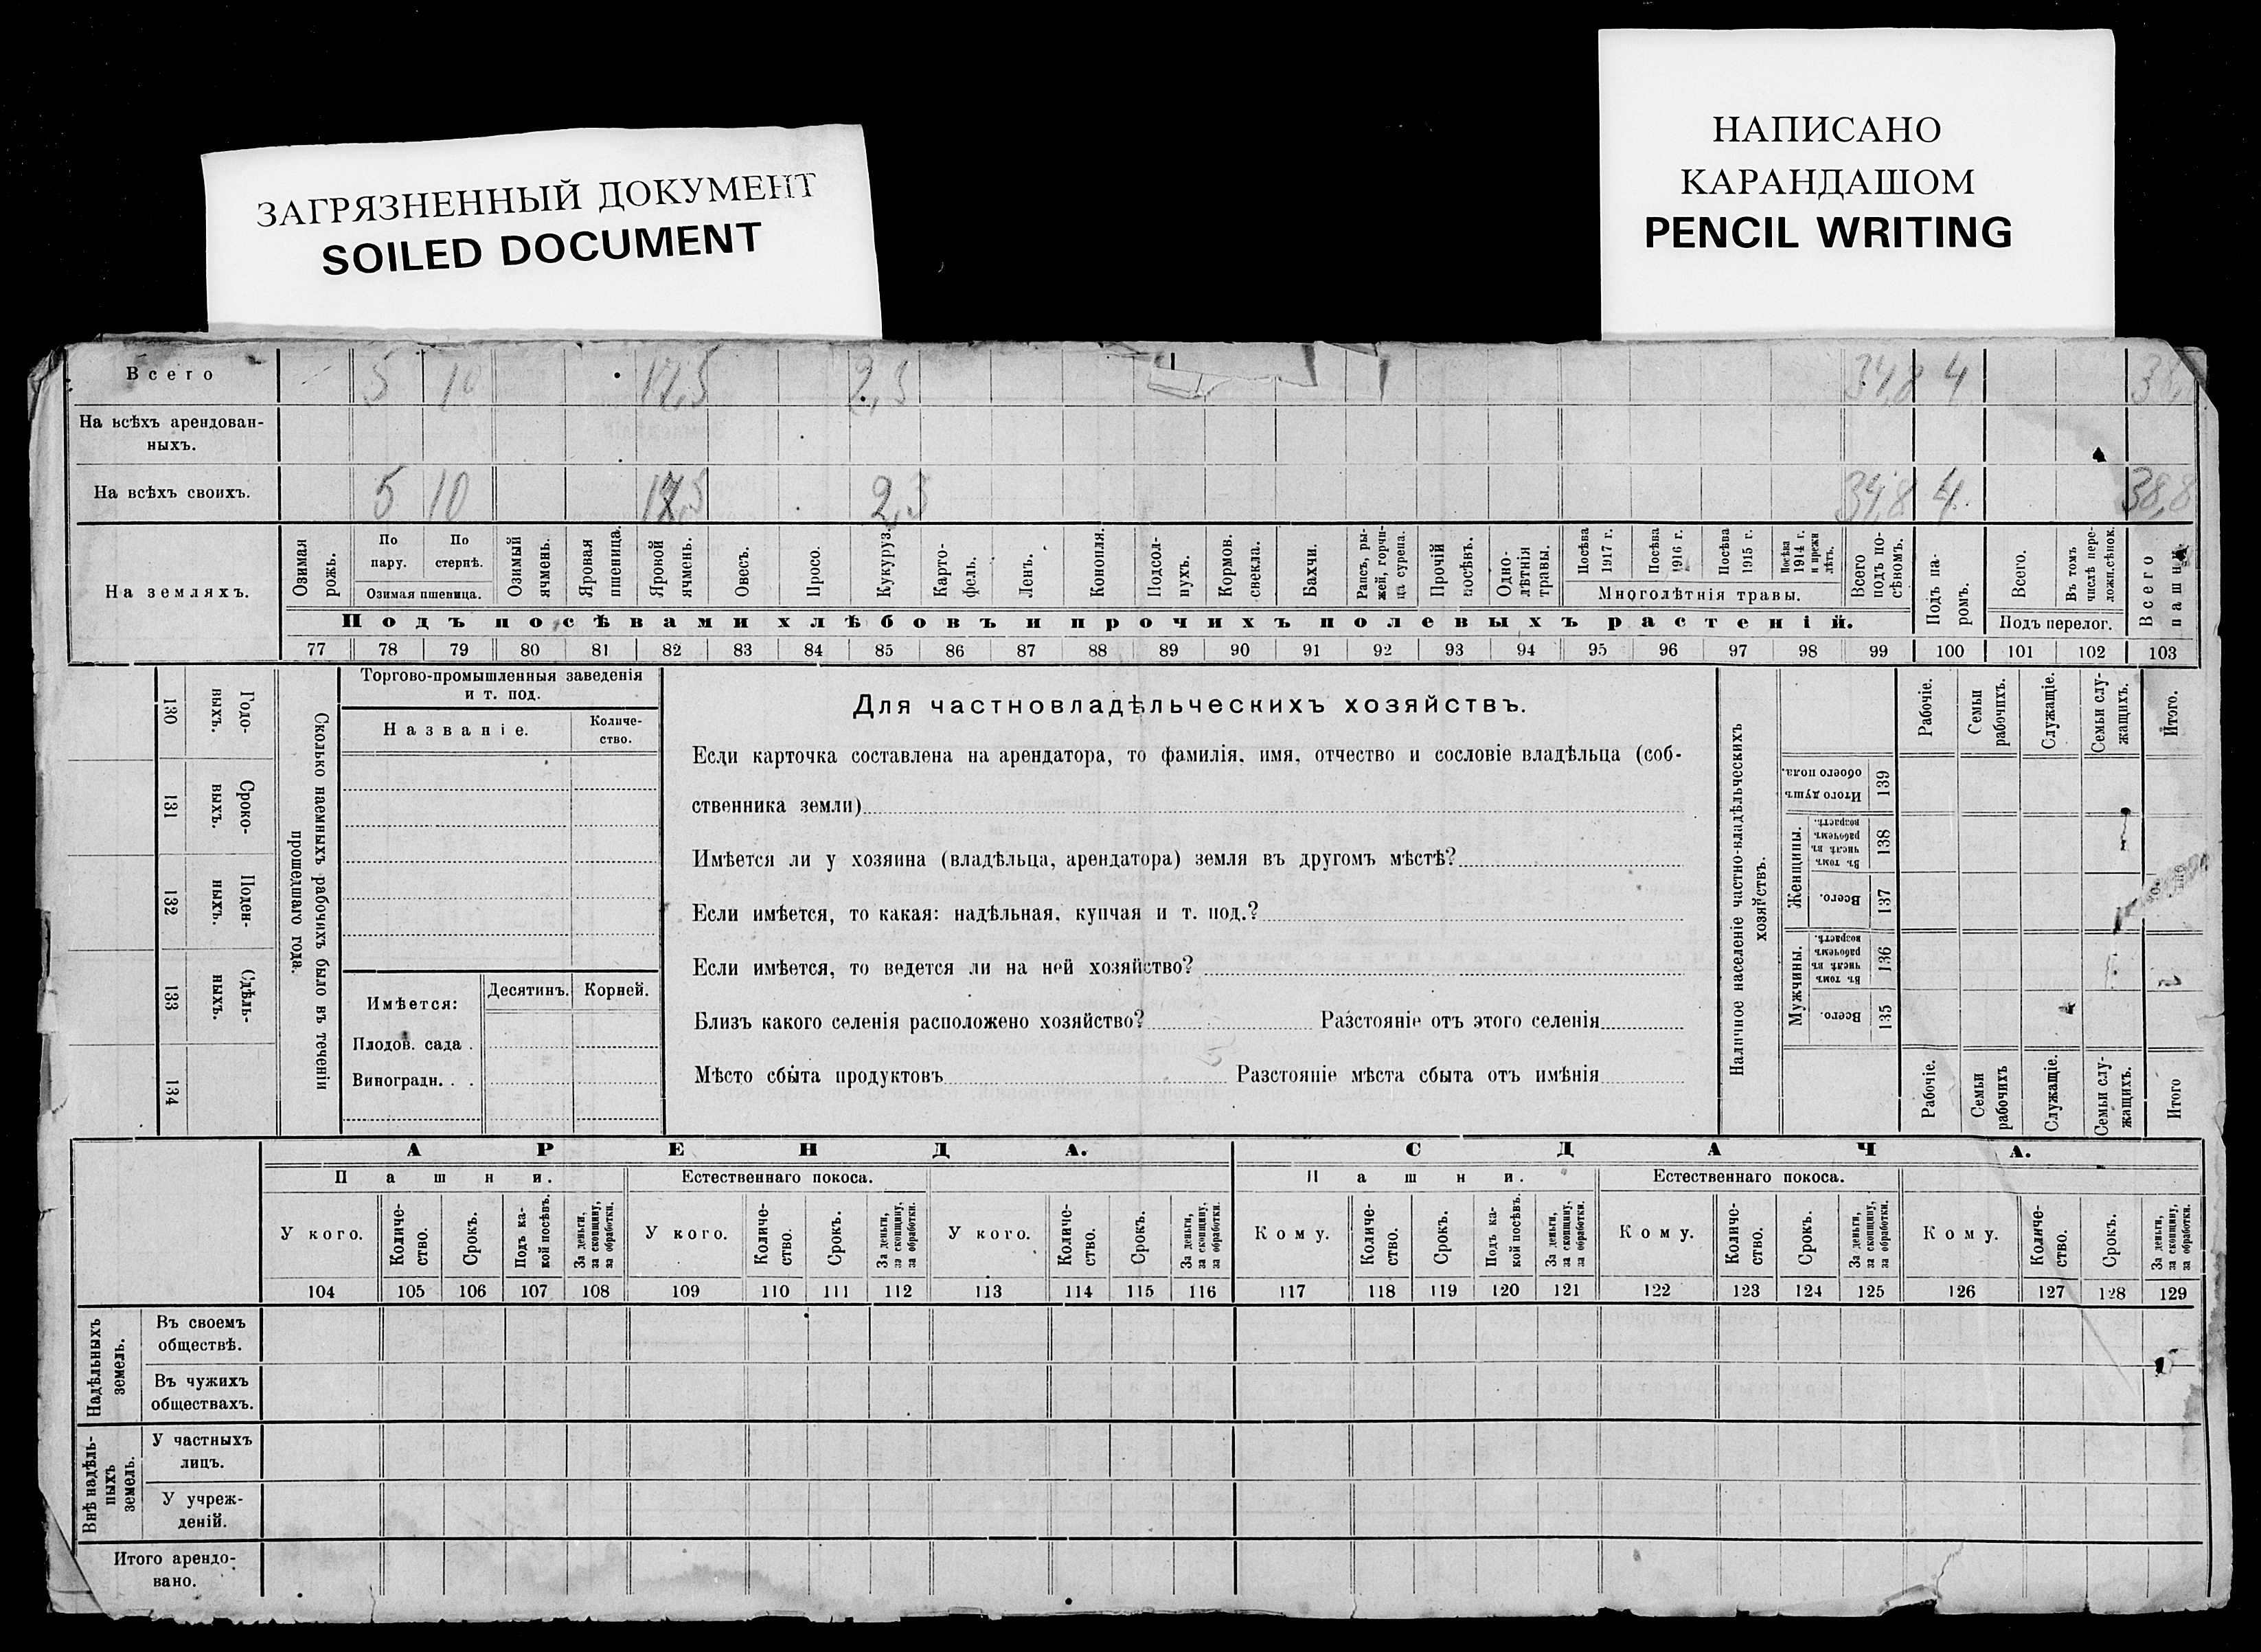 ЗАГРЯЗНЕННЫЙ ДОКУМЕНТ
SOILED DOCUMENT
НАПИСАНО
КАРАНДАШОМ
PENCIL WRITING
Всего 5 10 17,5 2,3 34,8 4 38,
На всѣхъ арендован-
ныхъ.
На всѣхъ своихъ. 5 10 17,5 2,3 34,8 4 38,8
На земляхъ.
Озимая рожь.
По пару.
По стернѣ.
Озимая пшеница.
Озимый ячмень.
Яровая пшеница.
Яровой ячмень.
Овесъ.
Просо.
Кукуруз.
Карто-
фель.
Ленъ.
Конопля.
Подсол-
нухъ.
Кормов. свекла.
Бахчи.
Рапсъ, ры-
жей, горчи-
ца сурепа.
Прочій посѣвъ.
Одно-
лѣтнія травы.
Посѣва 1917 г.
Посѣва 1916 г.
Посѣва 1915 г.
Посѣва 1914 г. и прежн лѣтъ.
Многолѣтнія травы.
Всего подъ по-
сѣвомъ.
Подъ па-
ромъ.
Всего.
Въ томъ числѣ пере-
ложн.сѣнок.
Подъ перелог.
Всего пашни.
Подъ посѣвами хлѣбовъ и прочихъ полевыхъ растеній.
77 78 79 80 81 82 83 84 85 86 87 88 89 90 91 92 93 94 95 96 97 98 99 100 101 102 103
130 Годо-
выхъ.
131 Сроко-
выхъ.
132 Поден-
ныхъ.
133 Сдѣль-
ныхъ.
134
Сколько наемныхъ рабочихъ было въ теченіи
прошедшаго года.
Торгово-промышленныя заведенія
и т. под.
Названіе.
Количе-
ство.
Имѣется:
Десятинъ.
Корней.
Плодов. сада .
Виноградн. . .
Для частновладѣльческихъ хозяйствъ.
Если карточка составлена на арендатора, то фамилія, имя, отчество и сословіе владѣльца (соб-
ственника земли)
Имѣется ли у хозяина (владѣльца, арендатора) земля въ другомъ мѣстѣ?
Если имѣется, то какая: надѣльная, купчая и т. под.?
Если имѣется, то ведется ли на ней хозяйство?
Близъ какого селенія расположено хозяйство? Разстояніе отъ этого селенія
Мѣсто сбыта продуктовъ Разстояніе мѣста сбыта отъ имѣнія
Наличное населеніе частно-владѣльческихъ
хозяйствъ.
Рабочіе.
Семьи рабочихъ.
Служащіе.
Семьи слу-
жащихъ.
Итого.
Итого душъ обоего пола. 139
Женщины.
Въ томъ числѣ въ рабочемъ возрастѣ. 138
Всего. 137
Мужчины.
Въ томъ числѣ въ рабочемъ возрастѣ. 136
Всего. 135
Рабочіе.
Семьи рабочихъ
Служащіе.
Семьи слу-
жащихъ.
Итого
АРЕНДА. СДАЧА.
Пашни. Естественнаго покоса. Пашни. Естественнаго покоса.
У кого.
Количе-
ство.
Срокъ.
Подъ ка-
кой посѣвъ.
За деньги,
за скопщину,
за обработки.
У кого.
Количе-
ство.
Срокъ.
За деньги,
за скопщину,
за обработки.
У кого.
Количе-
ство.
Срокъ.
За деньги,
за скопщину,
за обработки.
Кому.
Количе-
ство.
Срокъ.
Подъ ка-
кой посѣвъ.
За деньги,
за скопщину,
за обработки.
Кому.
Количе-
ство.
Срокъ.
За деньги,
за скопщину,
за обработки.
Кому.
Количе-
ство.
Срокъ.
За деньги,
за скопщину,
за обработки.
104 105 106 107 108 109 110 111 112 113 114 115 116 117 118 119 120 121 122 123 124 125 126 127 128 129
Надѣльныхъ
земель.
Въ своемъ
обществѣ.
Въ чужихъ
обществахъ.
Внѣ надѣль-
ныхъ
земель.
У частныхъ
лицъ.
У учреж-
деній.
Итого арендо-
вано.